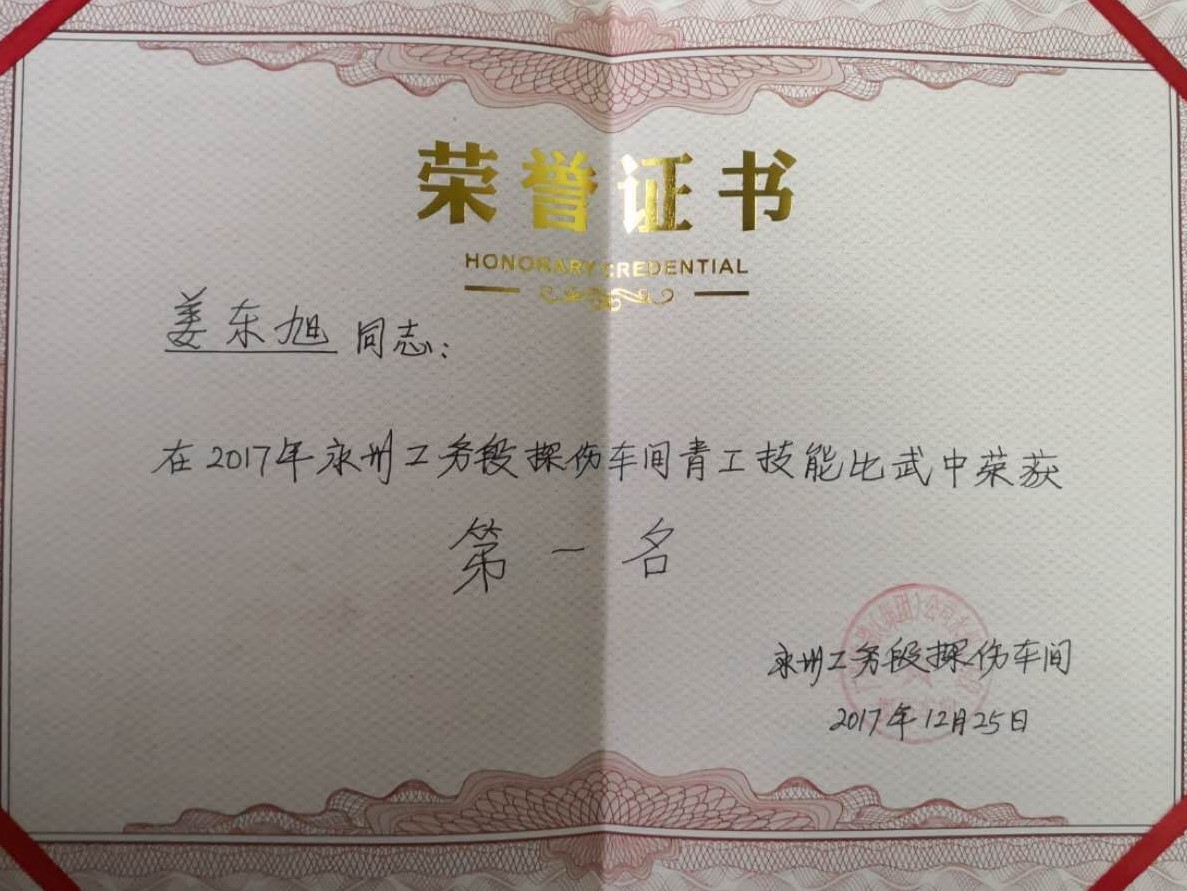 荣誉证书
HONORARY CREDENTIAL
姜东旭 同志：
在2017年永州工务段探伤车间青工技能比武中荣获
第一名
永州工务段探伤车间
2017年12月25日
(集团)公司